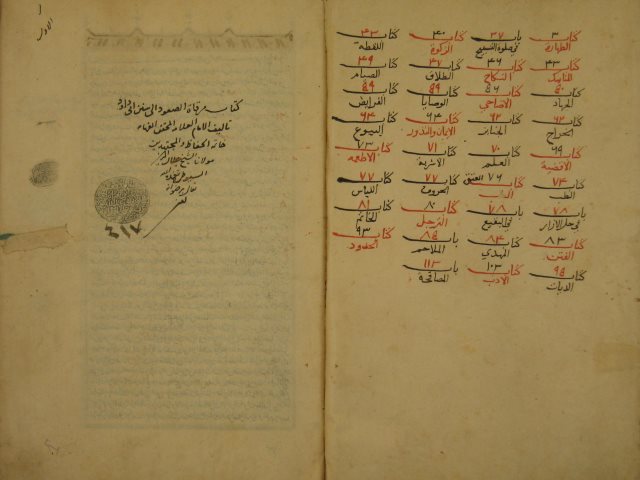 كتاب ٣ باب ٣٧ كتاب ٤٠ كتاب ٤٣
الطهارة في صلوة التسبيح الزكوة اللقطة
كتاب ٤٣ كتاب ٤٦ كتاب ٤٧ كتاب ٤٩
المناسك النكاح الطلاق الصيام
كتاب ٥٠ كتاب ٥٦ كتاب ٥٩ كتاب ٥٩
الجهاد الاضاحي الوصايا الفرايض
كتاب ٦٢ كتاب ٦٢ كتاب ٦٤ كتاب ٦٤
الخراج الجنائز الايمان والنذور البيوع
كتاب ٦٩ كتاب ٧٠ كتاب ٧١ كتاب ٧٣
الاقضية العلم الاشربة الاطعمة
كتاب ٧٤ كتاب ٧٦ العتق كتاب ٧٧ كتاب ٧٧
الطب الحروف اللباس
باب ٧٨ باب ٧٨ كتاب ٨٠ كتاب ٨١
في حل الازار في الترجل الخاتم
كتاب ٨٣ كتاب ٨٤ باب ٨٥ كتاب ٩٣
الفتن المهدي الملاحم الحدود
كتاب ٩٥ كتاب ١٠٣ باب ١١٣
الديات الادب المصافحة
كتاب مرقاة الصعود الى سنن ابي داود
تاليف الامام العلامة المحقق الفهامة
خاتمة الحفاظ والمجتهدين
مولانا الشيخ جلال الدين
السيوطي تغمده الله
تعالى برضوانه
٤١٧